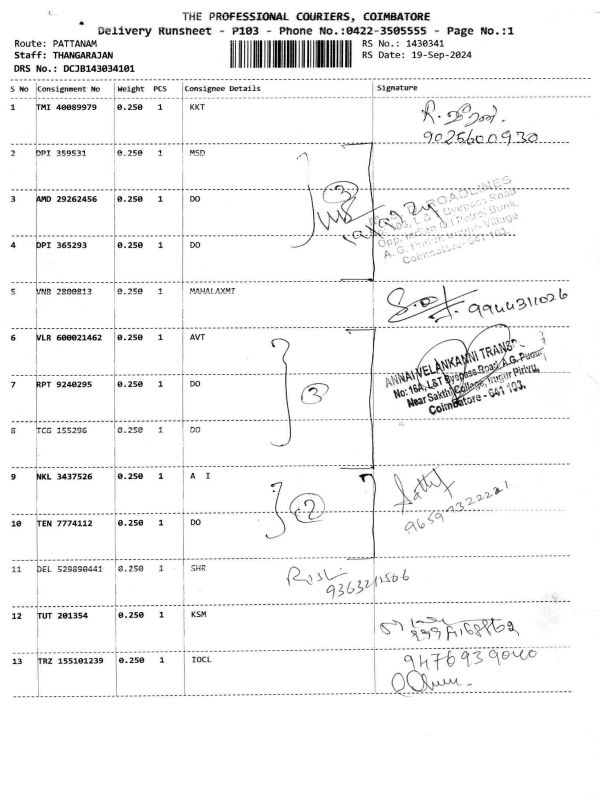 THE PROFESSIONAL COURIERS, COIMBATORE
Delivery Runsheet - P103 - Phone No.:0422-3505555 - Page No.:1
Route: PATTANAM RS No.: 1430341
Staff: THANGARAJAN RS Date: 19-Sep-2024
DRS No.: DCJB143034101
S No Consignment No Weight PCS Consignee Details Signature
1 TMI 40089979 0.250 1 KKT
9025600930
2 DPI 359531 0.250 1 MSD
3 AMD 29262456 0.250 1 DO
3
ROADLINES
4 DPI 365293 0.250 1 DO
Coimbatore- 641 103.
5 VNB 2800813 0.250 1 MAHALAXMI
9944311026
6 VLR 600021462 0.250 1 AVT
ANNAI VELANKANNI TRANSP
No: 16A, L&T Byepass Road, A.G. Pudur
7 RPT 9240295 0.250 1 DO 3
Near Sakthi College, Irugur Pirivu,
Coimbatore - 641 103.
8 TCG 155296 0.250 1 DO
9 NKL 3437526 0.250 1 A I
2
10 TEN 7774112 0.250 1 DO
11 DEL 529890441 0.250 1 SHR
9363211506
12 TUT 201354 0.250 1 KSM
13 TRZ 155101239 0.250 1 IOCL
9476939040